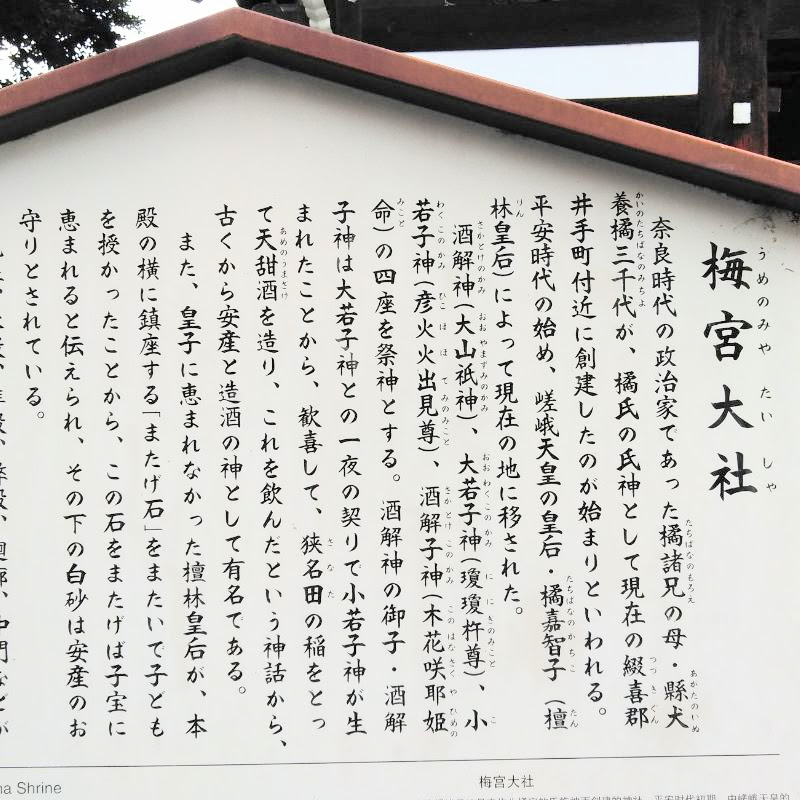 梅宮大社
うめのみや たいしゃ
奈良時代の政治家であった橘諸兄の母・縣犬
養橘三千代が、橘氏の氏神として現在の綴喜郡
井手町付近に創建したのが始まりといわれる。
平安時代の始め、嵯峨天皇の皇后・橘嘉智子（檀
林皇后）によって現在の地に移された。
酒解神（大山祇神）、大若子神（瓊瓊杵尊）、小
若子神（彦火火出見尊）、酒解子神（木花咲耶姫
命）の四座を祭神とする。酒解神の御子・酒解
子神は大若子神との一夜の契りで小若子神が生
まれたことから、歓喜して、狭名田の稲をとっ
て天甜酒を造り、これを飲んだという神話から、
古くから安産と造酒の神として有名である。
また、皇子に恵まれなかった檀林皇后が、本
殿の横に鎮座する「またげ石」をまたいで子ども
を授かったことから、この石をまたげば子宝に
恵まれると伝えられ、その下の白砂は安産のお
守りとされている。
ma Shrine
梅宮大社